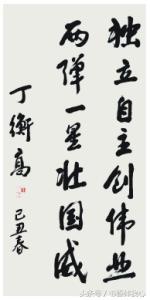 独立自主创伟业
两弹一星壮国威
丁衡高
己丑春